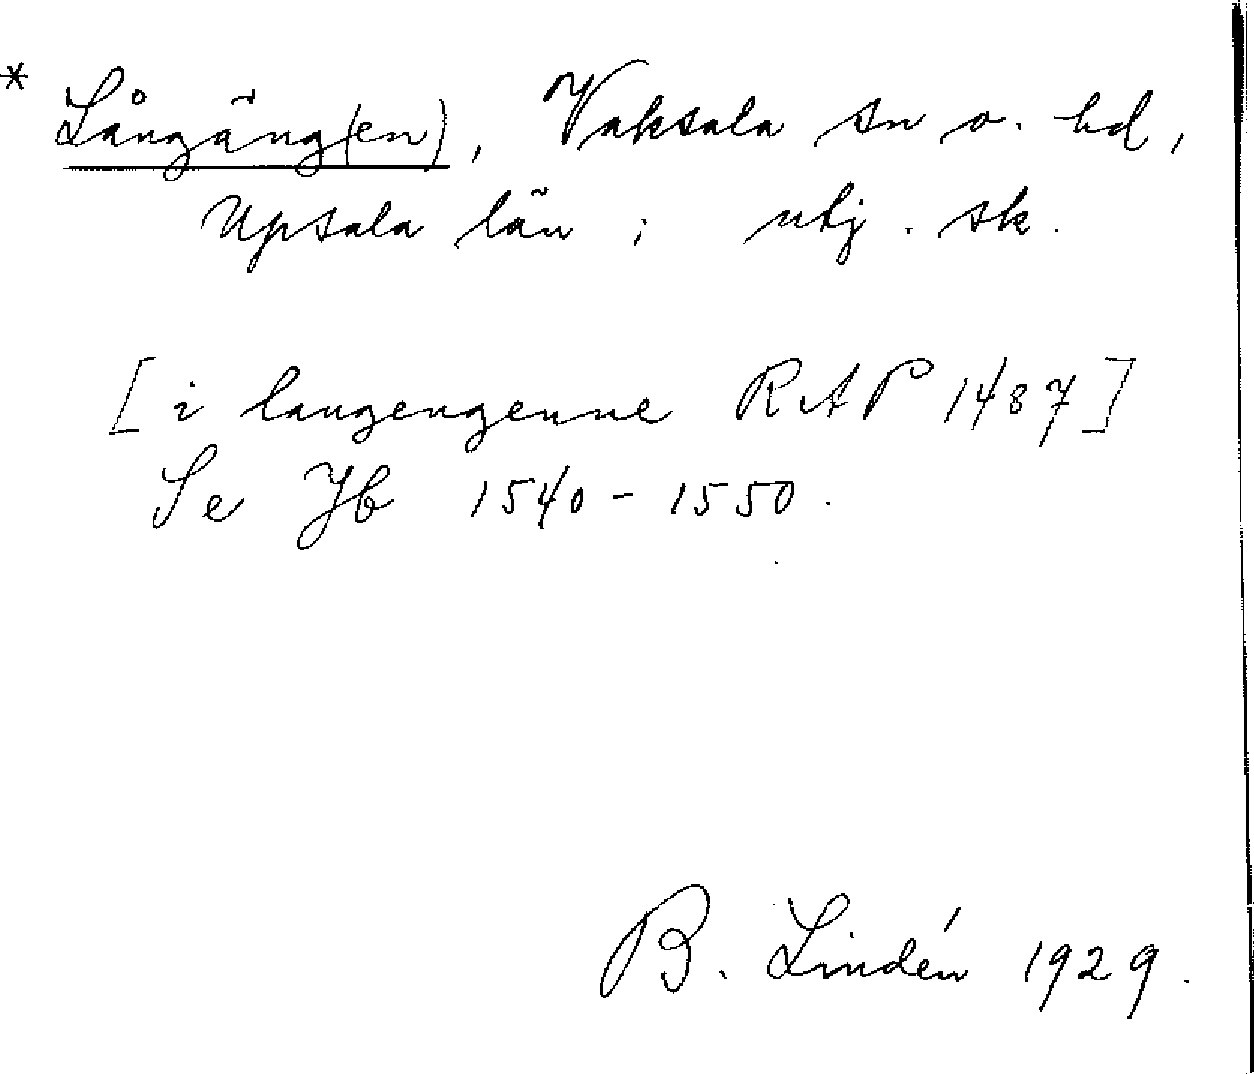 * Långäng(en), Vaksala sn o. hd,
Upsala län; utj. sk.
[i langengenne RAP 1487]
Se Jb 1540-1550.
B. Lindén 1929.